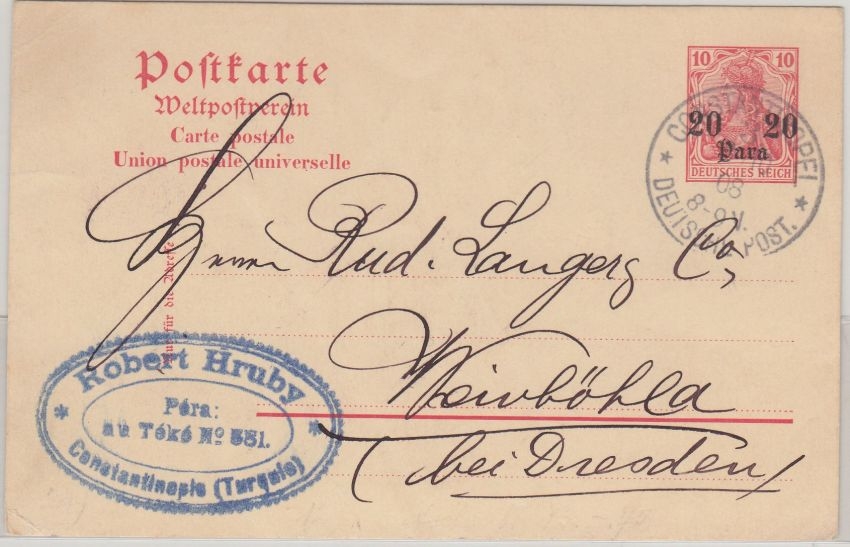 Postkarte
Weltpostverein
Carte postale
Union postale universelle
10 10
20 20
Para
DEUTSCHES REICH
CONSTANTINOPEL
08
8-9V.
DEUTSCHE POST.
Herrn Rud. Langer & Co,
Weinböhla
(bei Dresden)
Nur für die Adresse
Robert Hruby
Péra:
au Téké No 551.
Constantinople (Turquie)